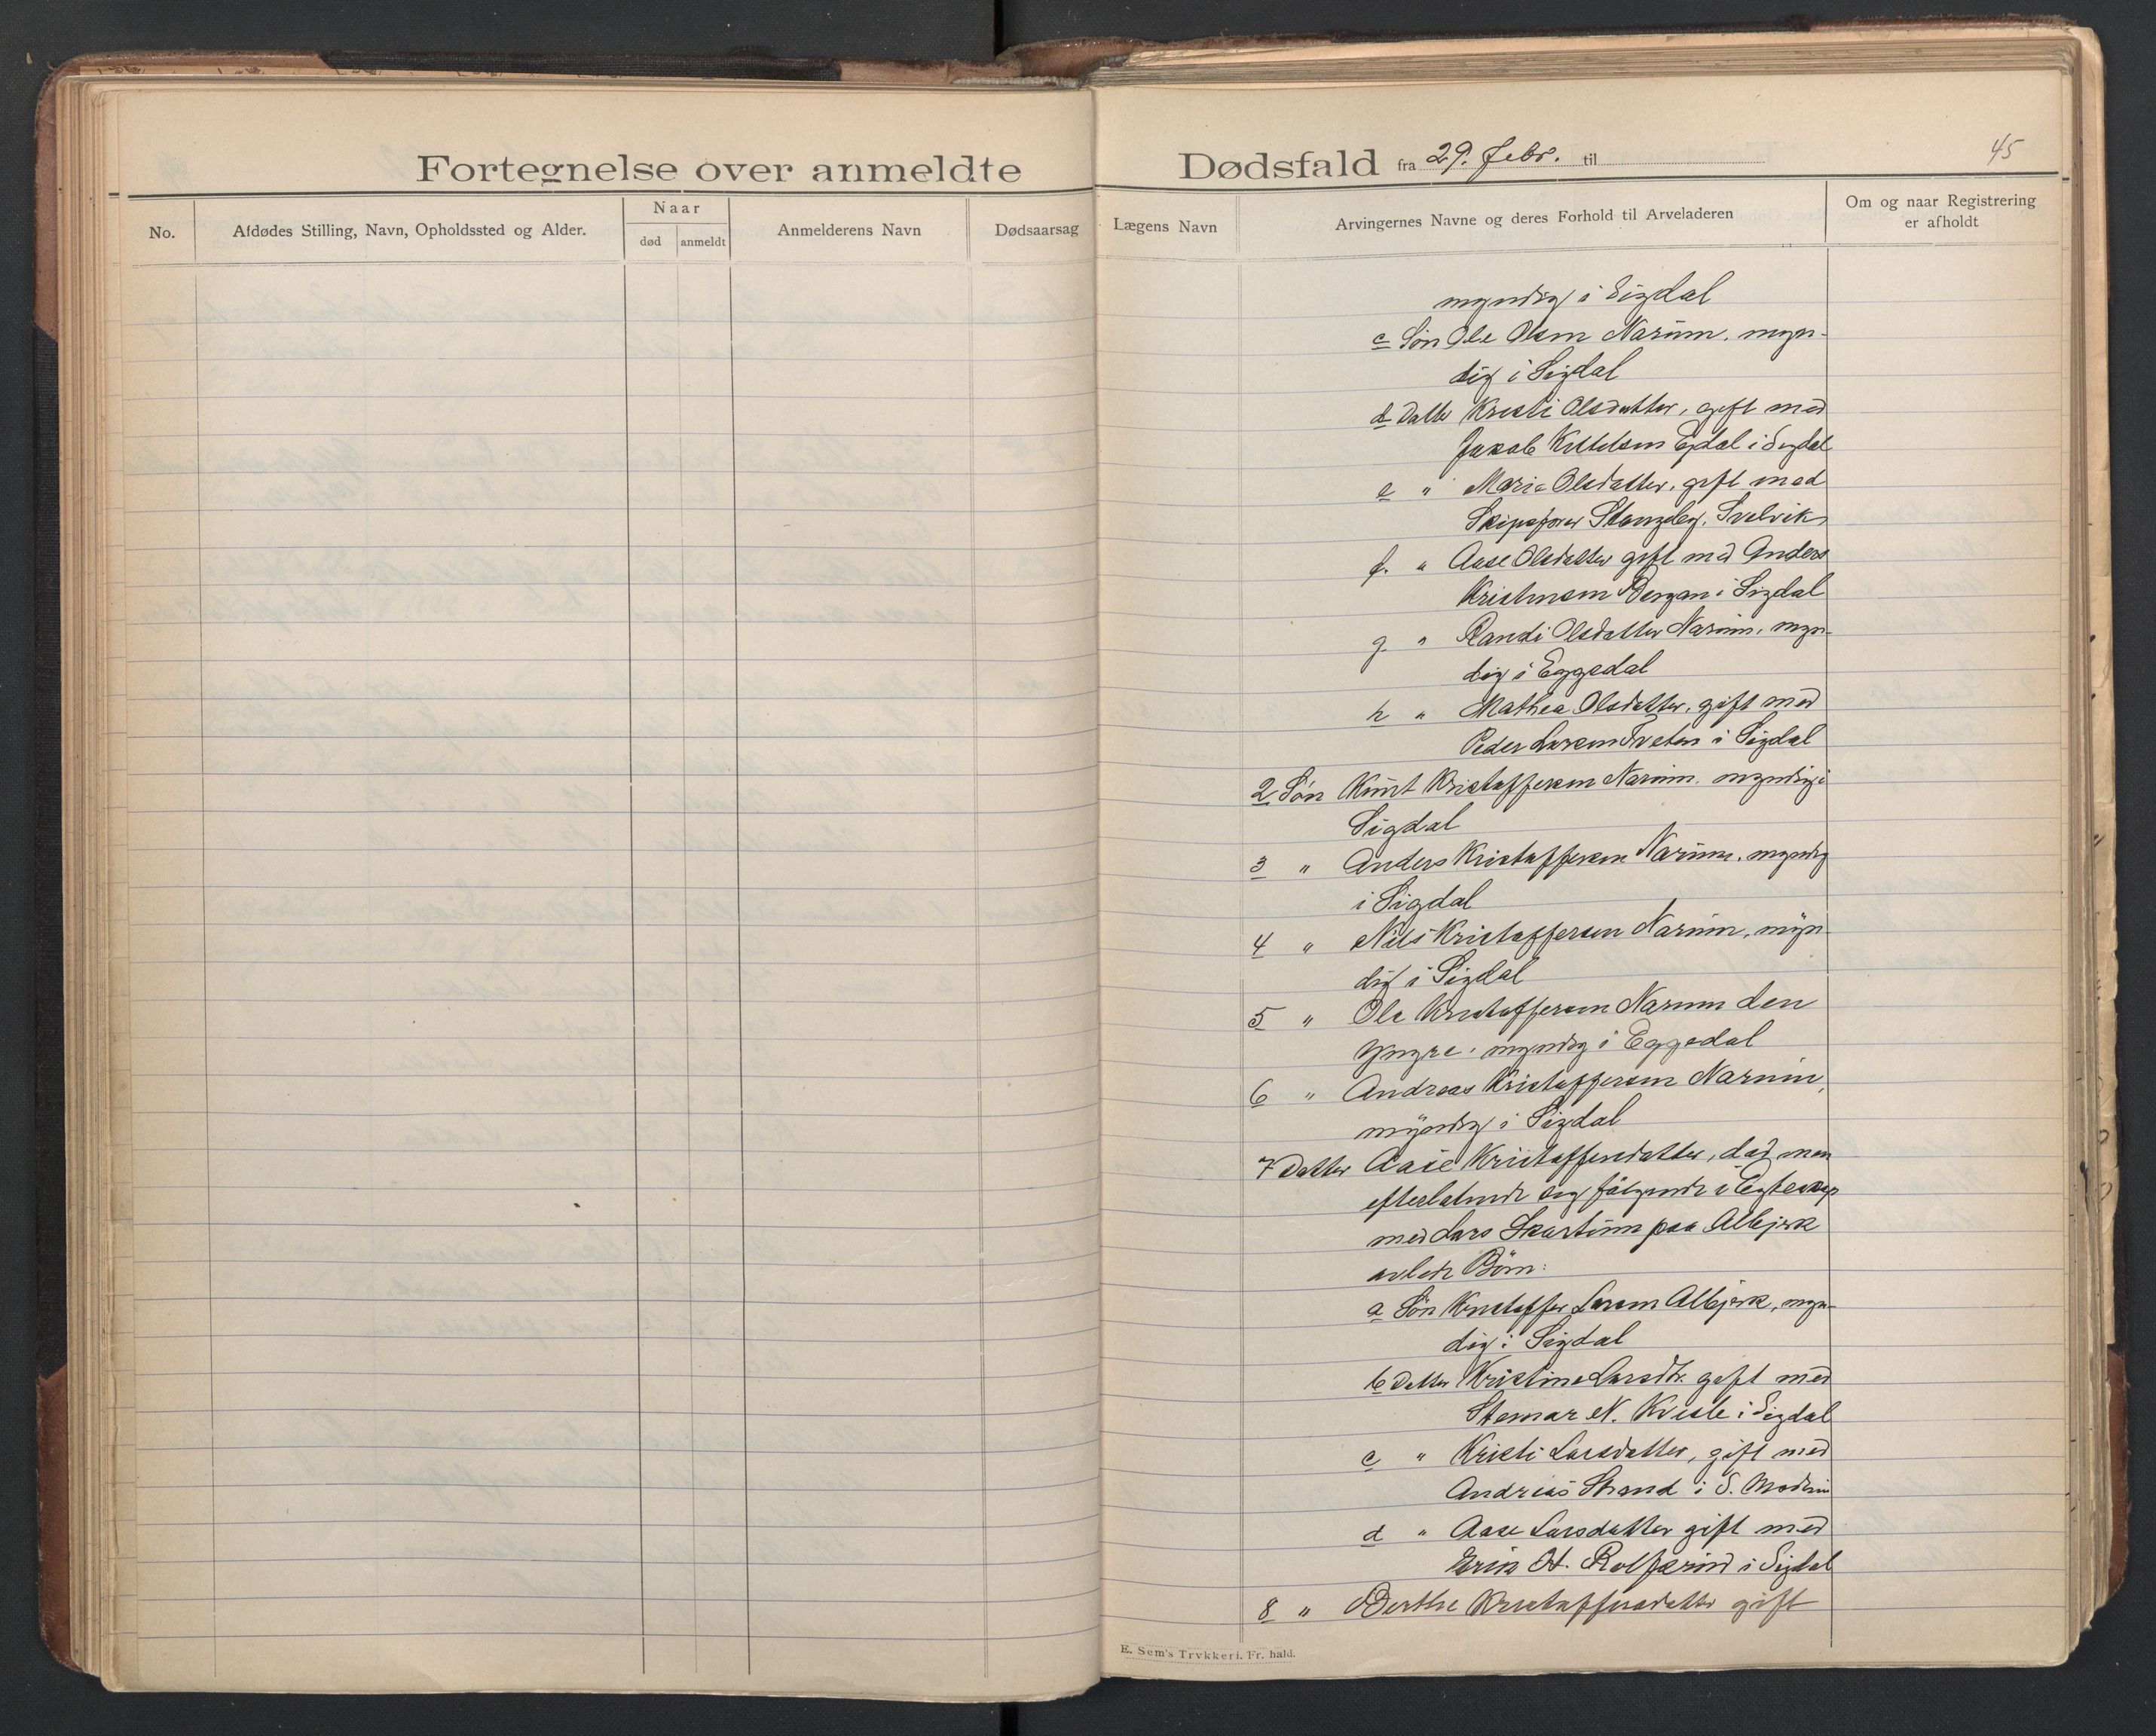 Fortegnelse over anmeldte
Dødsfald fra 29. febr. til
45
No.
Afdødes Stilling, Navn, Opholdssted og Alder.
Naar
død
anmeldt
Anmelderens Navn
Dødsaarsag
Lægens Navn
Arvingernes Navne og deres Forhold til Arveladeren
Om og naar Registrering
er afholdt
myndig i Sigdal
c Søn Ole Olsen Narum, myn-
dig i Sigdal
d Datter Kristi Olsdatter, gift med
Jakob Kittelsen Egdal i Sigdal
e " Marie Olsdatter, gift med
Skipsfører Stangeby, Svelvik
f. " Aase Olsdatter gift med Anders
Kristensen Bergan i Sigdal
g " Randi Olsdatter Narum, myn-
dig i Eggedal
h " Mathea Olsdatter, gift med
Peder Larsen Tveten i Sigdal
2 Søn Knut Kristoffersen Narum, myndig i
Sigdal
3 " Anders Kristoffersen Narum, myndig
i Sigdal
4 " Nils Kristoffersen Narum, myn-
dig i Sigdal
5 " Ole Kristoffersen Narum den
yngre, myndig i Eggedal
6 " Andreas Kristoffersen Narum,
myndig i Sigdal
7 Datter Aase Kristoffersdatter, død men
efterladende sig følgende i Egteskap
med Lars Skartum paa Albjerk
avlede Børn:
a Søn Kristoffer Larsen Albjerk, myn-
dig i Sigdal
b Datter Kristine Larsdtr. gift med
Stemar N. Kvisle i Sigdal
c " Kristi Larsdatter, gift med
Andreas Strand i S. Modum
d " Aase Larsdatter gift med
Erik H. Rolfsrud i Sigdal
8 " Berthe Kristoffersdatter gift
E. Sem's Trykkeri. Fr. hald.